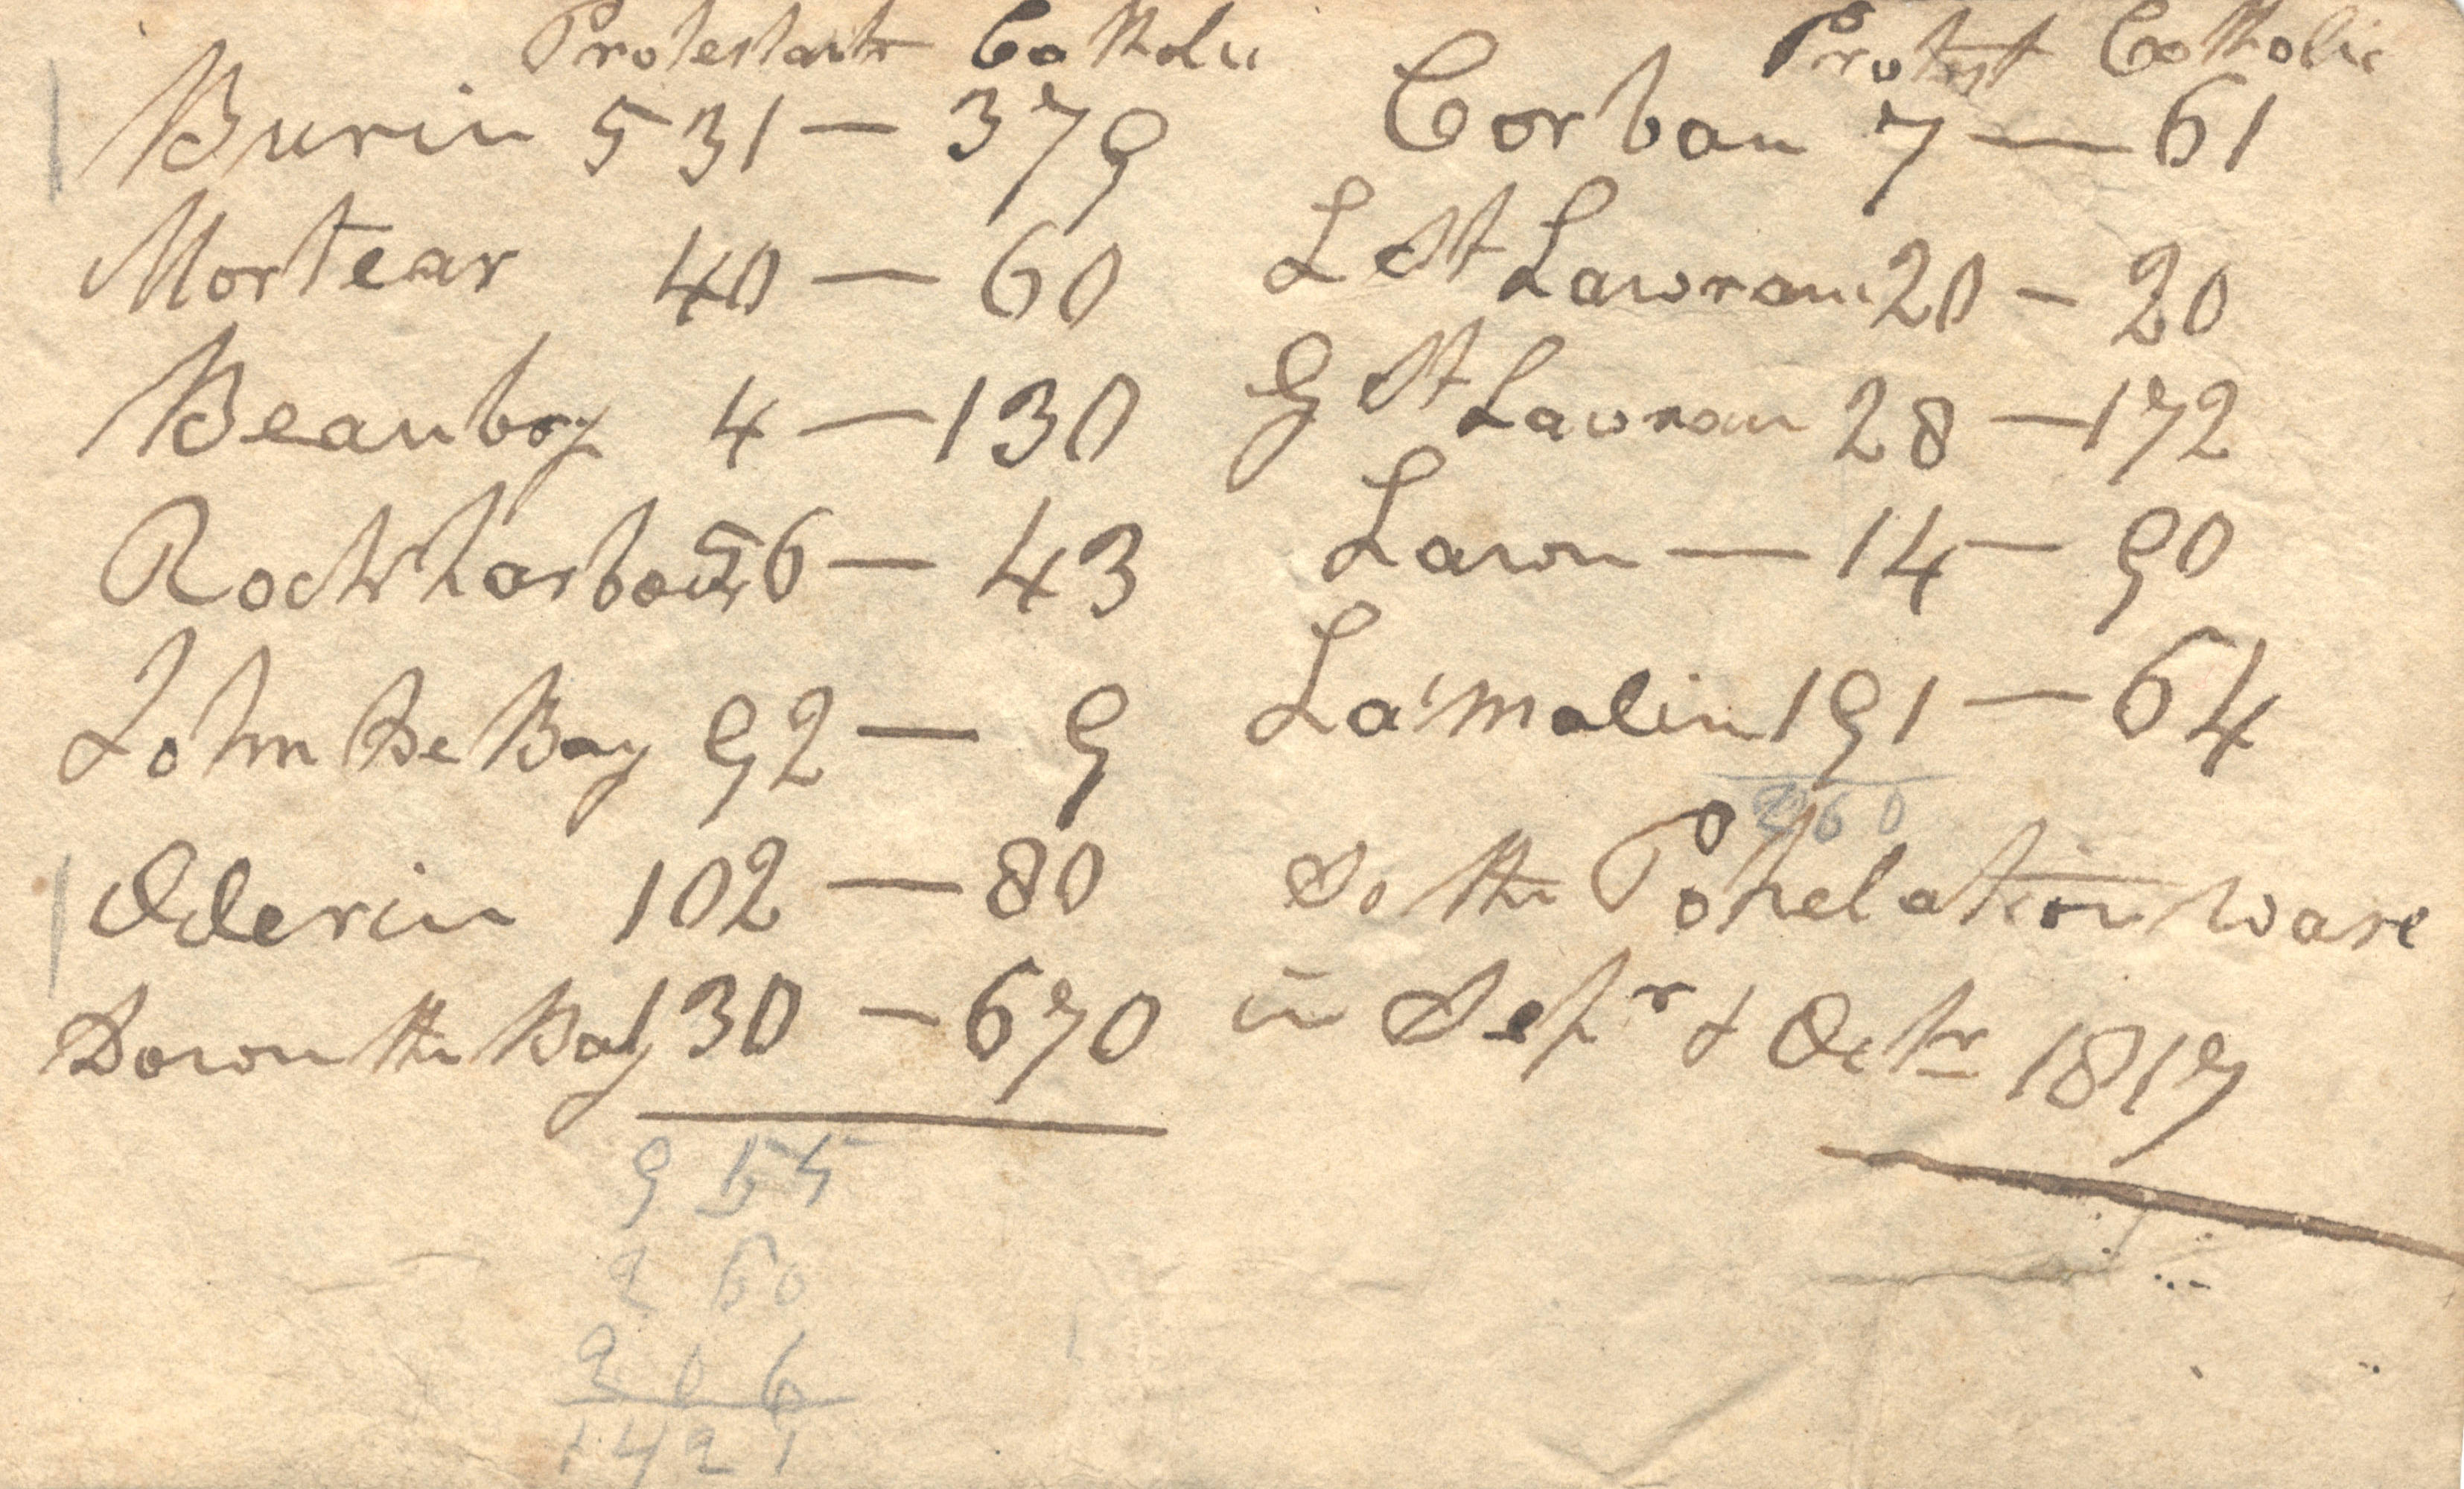 Protestants Catholic
Burin 531 — 379
Mortear 40 — 60
Beauboy 4 — 130
Rock harbour 56 — 43
John De Bay 92 — 9
Oderin 102 — 80
Down the Bay 130 — 670
955
260
206
1421
Protest Catholic
Corban 7 — 61
L St Lawran 20 — 20
G St Lawran 28 — 172
Lawn — 14 — 90
La'malin 191 — 64
260
So the Popelation ware
in Sepr & Octr 1817